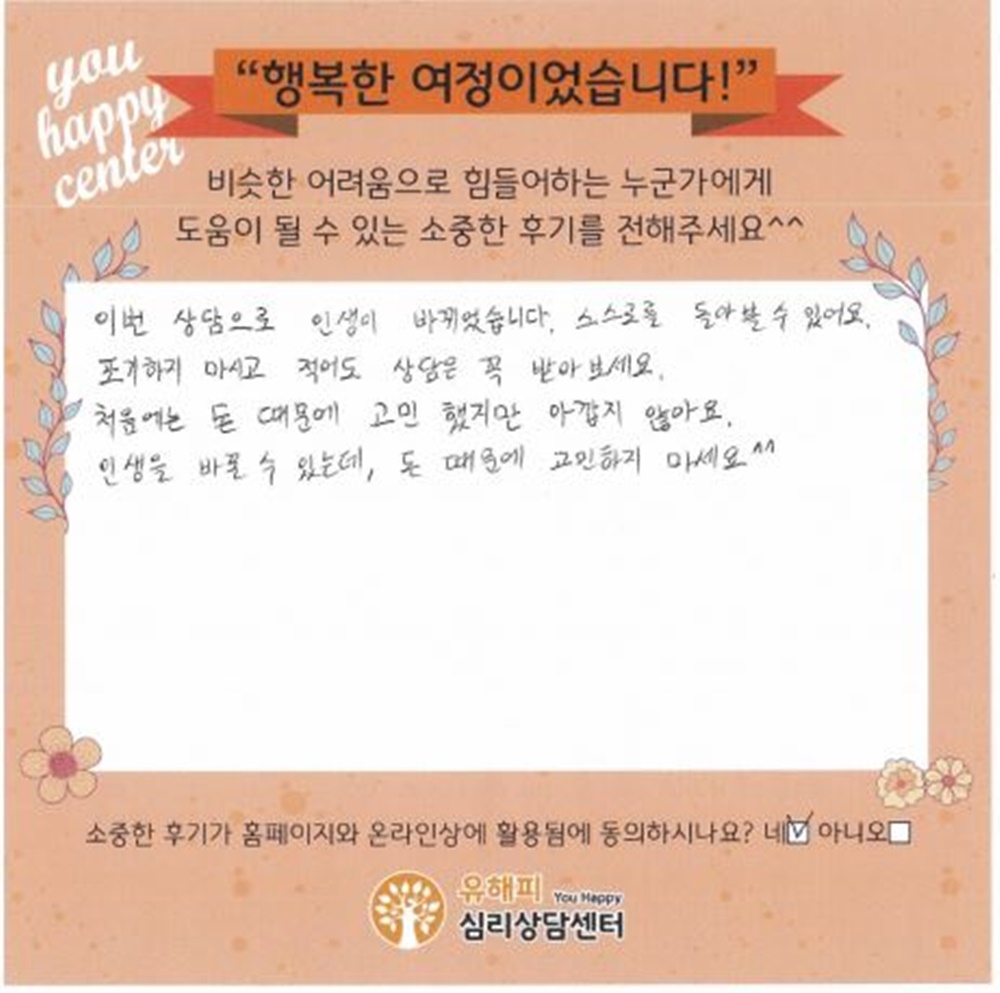 you
happy
center
“행복한 여정이었습니다!”
비슷한 어려움으로 힘들어하는 누군가에게
도움이 될 수 있는 소중한 후기를 전해주세요^^
이번 상담으로 인생이 바뀌었습니다. 스스로를 돌아볼 수 있어요.
포기하지 마시고 적어도 상담은 꼭 받아 보세요.
처음에는 돈 때문에 고민 했지만 아깝지 않아요.
인생을 바꿀 수 있는데, 돈 때문에 고민하지 마세요^^
소중한 후기가 홈페이지와 온라인상에 활용됨에 동의하시나요? 네☑ 아니오☐
유해피 You Happy
심리상담센터